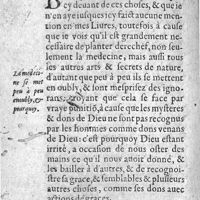 cy deuant de ces choses, & que ie
n'en aye iusques icy faict aucune men-
tion en mes Liures, toutefois à cause
que ie vois qu'il est grandement ne-
cessaire de planter derechef, non seu-
lement la medecine, mais aussi tous
les autres arts & secrets de nature,
d'autant que peu à peu ils se mettent
en oubly, & sont mesprisez des igno-
rans, voyant que cela se face par
vraye punitiō, à cause que les mysteres
& dons de Dieu ne sont pas recognus
par les hommes comme dons venans
de Dieu: c'est pourquoy Dieu estant
irrité, a occasion de nous oster des
mains ce qu'il nous auoit donné, &
les bailler à d'autres, & de recognoi-
stre sa grace, & semblables & plusieurs
autres choses, comme ses dons auec
actions de graces.
La medeci-
ne se met
peu à peu
en oubly, &
pourquoy.